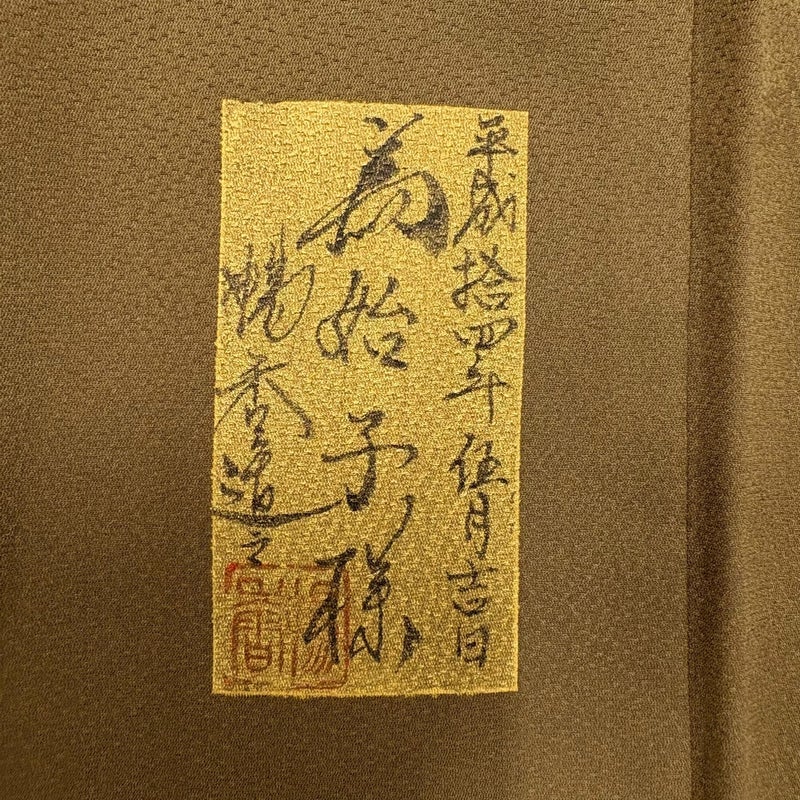 平成拾四年伍月吉日
為始子様
暢香道之